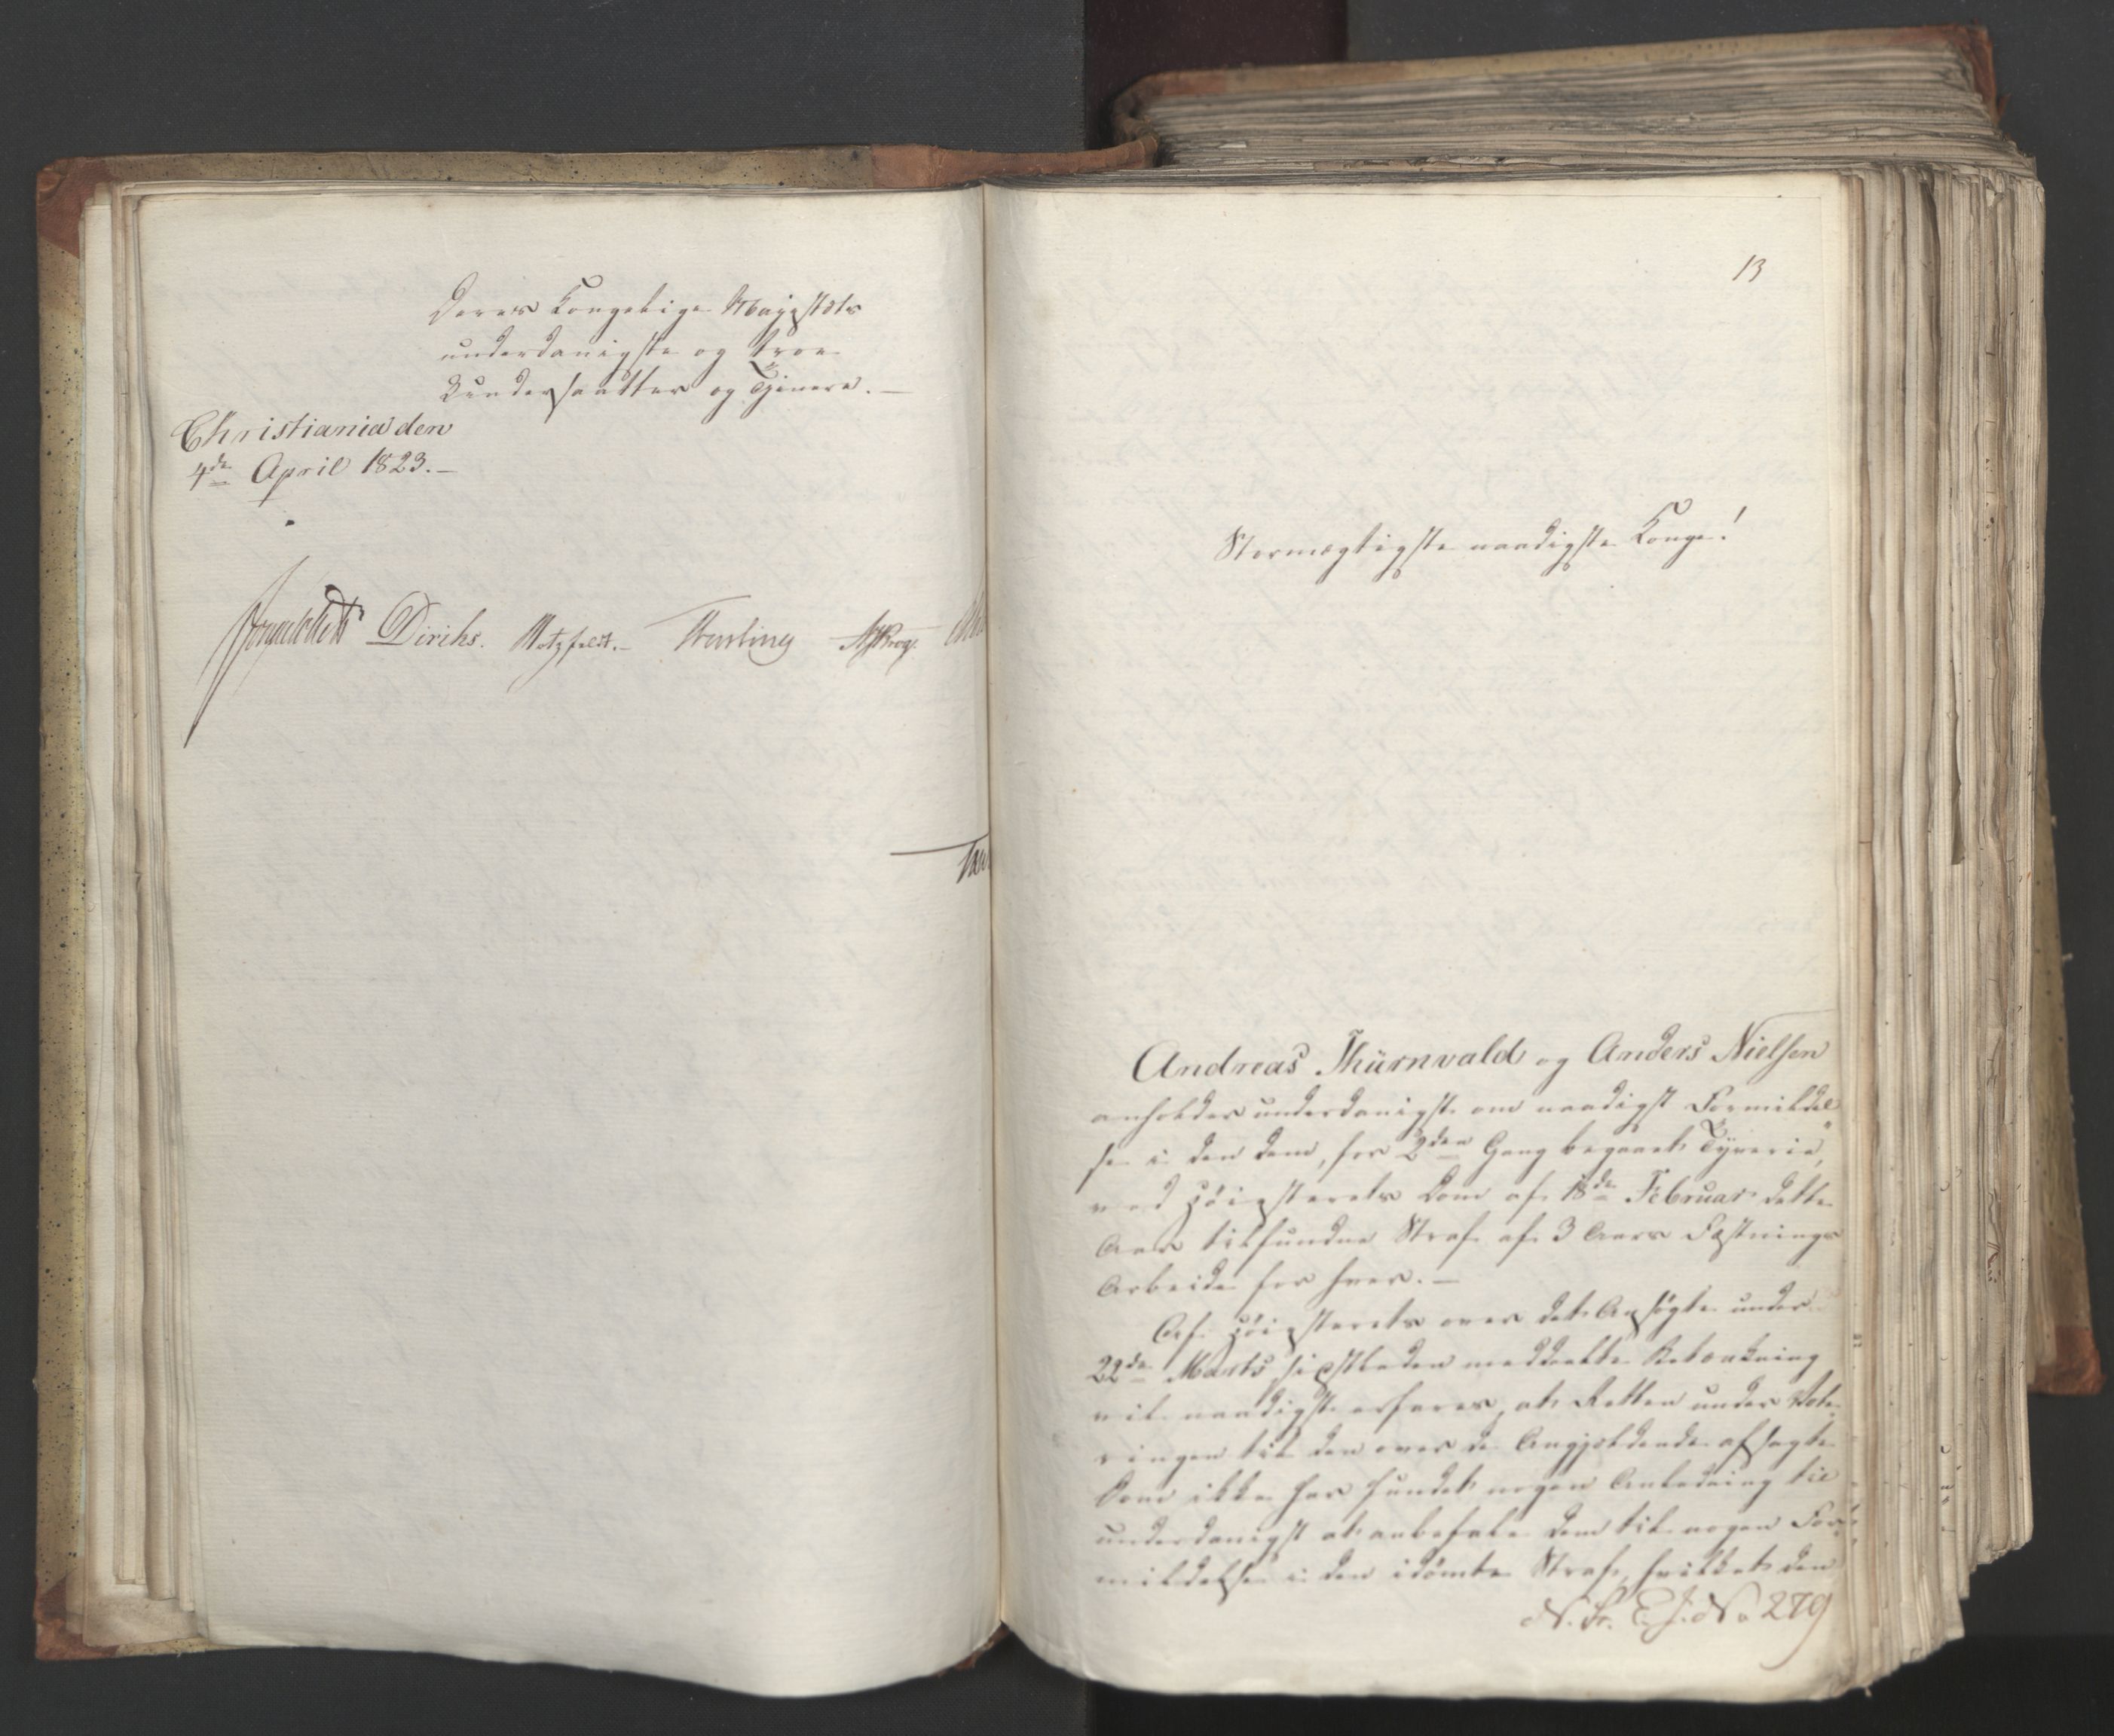 Deres Kongelige Majestæts
underdanigste og troe
Undersaatter og Tjenere. —
Christiania den
4de April 1823. —
Diriks. Motzfeldt. — Krog.
13
Stormægtigste naadigste Konge!
Andreas Thürnvald og Anders Nielsen
anholder underdanigst om naadigst Formildel
se i den dem, for 2den Gang begaaet Tyverie,
ved Høiesterets Dom af 18de Februar dette
Aar tilfundne Straf af 3 Aars Fæstnings
Arbeide for hver. —
Af Høiesterets over det Ansøgte under
22de Marts sidstleden meddeelte Betænkning
vil naadigst erfares, at Retten under Vote-
ringen til den over de Angjeldende afsagte
Dom ikke har fundet nogen Anledning til
underdanigst at anbefale dem til nogen For-
mildelse i den idömte Straf, hvilket den
No 279